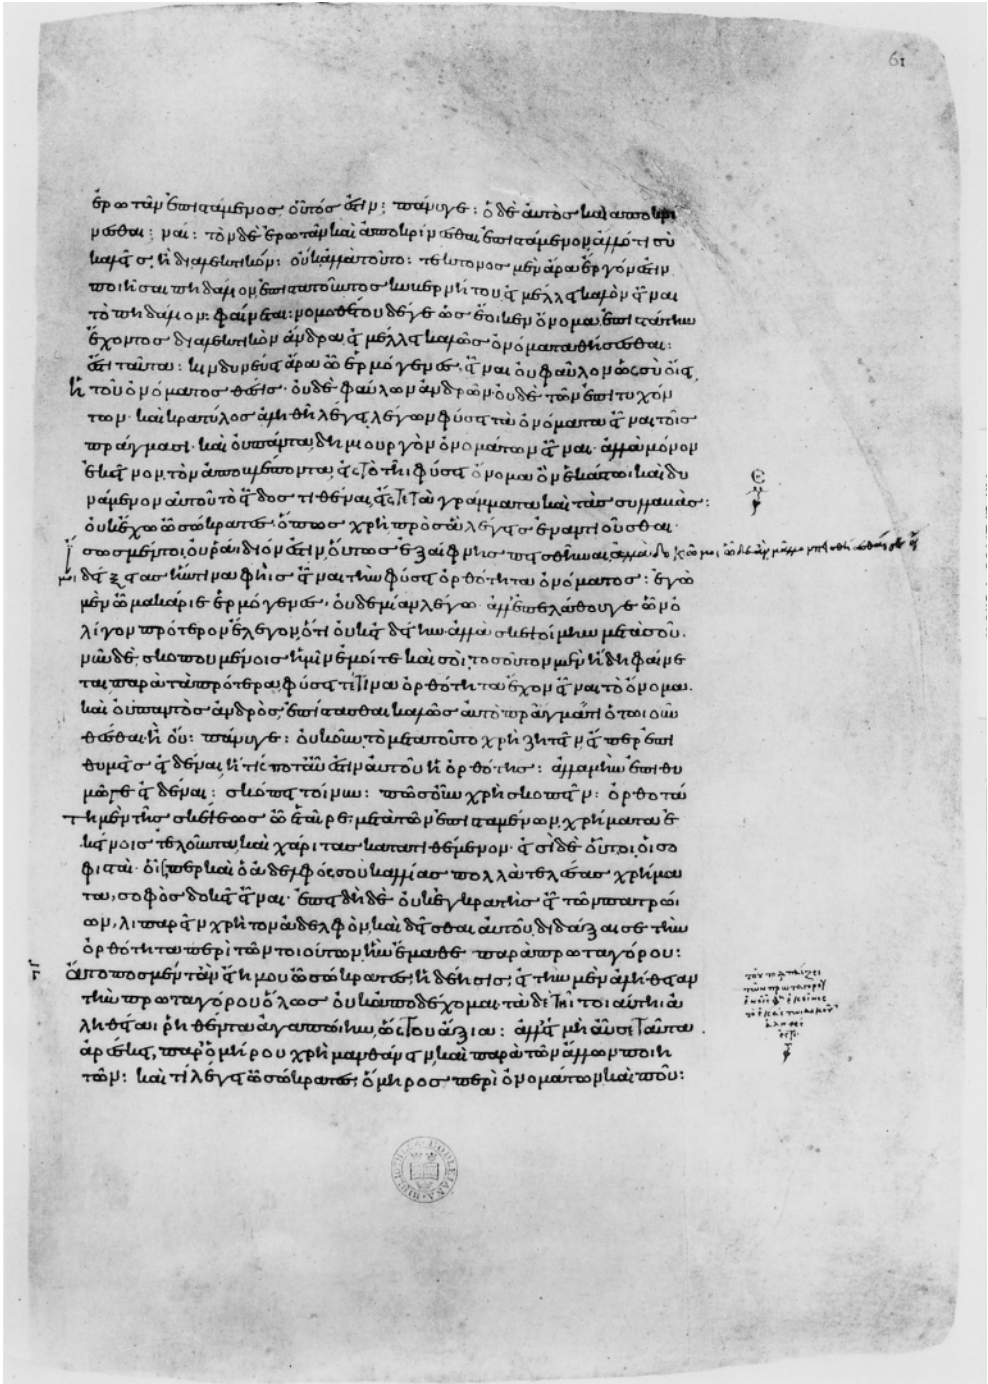 61
ἐρωτᾶν ἐπιστάμενος οὗτός ἐστιν: πάνυγε: ὁ δὲ αὐτὸς καὶ ἀποκρί
νεσθαι: ναί: τὸν δὲ ἐρωτᾶν καὶ ἀποκρίνεσθαι ἐπιστάμενον, ἄλλό τι σὺ
καλεῖς, ἢ διαλεκτικόν: οὐκ ἀλλὰ τοῦτο: τέκτονος μὲν ἄρα ἔργόν ἐστιν
ποιῆσαι πηδάλιον, ἐπιστατοῦντος κυβερνήτου, εἰ μέλλει καλὸν εἶναι
τὸ πηδάλιον: φαίνεται: νομοθέτου δέ γε ὡς ἔοικεν ὄνομα, ἐπιστάτην
ἔχοντος διαλεκτικὸν ἄνδρα, εἰ μέλλει καλῶς ὀνόματα θήσεσθαι:
ἔστι ταῦτα: κινδυνεύει ἄρα ὦ ἑρμόγενες, εἶναι οὐ φαῦλον ὡς σὺ οἴει,
ἡ τοῦ ὀνόματος θέσις· οὐδὲ φαύλων ἀνδρῶν· οὐδὲ τῶν ἐπιτυχόν
των· καὶ κρατύλος ἀληθῆ λέγει, λέγων φύσει τὰ ὀνόματα εἶναι τοῖς
πράγμασι· καὶ οὐ πάντα, δημιουργὸν ὀνομάτων εἶναι· ἀλλὰ μόνον
ἐκεῖνον, τὸν ἀποβλέποντα, εἰς τὸ τῆι φύσει ὄνομα ὂν ἑκάστωι καὶ δυ
νάμενον αὐτοῦ τὸ εἶδος τιθέναι, εἴς τε τὰ γράμματα καὶ τὰς συλλαβάς:
οὐκ ἔχω ὦ σώκρατες, ὅπως χρὴ πρὸς ἃ λέγεις ἐναντιοῦσθαι·
ἴσως μέντοι, οὐ ῥάιδιόν ἐστιν, οὕτως ἐξαίφνης πεισθῆναι, ἀλλὰ δοκῶ μοι ὧδε ἂν μᾶλλον πιθέσθαι σοι εἴ
μοι δείξειας ἥντινα φὴις εἶναι τὴν φύσει ὀρθότητα ὀνόματος: ἐγὼ
μὲν ὦ μακάριε ἑρμόγενες, οὐδεμίαν λέγω· ἀλλ' ἐπελάθου γε ὧν ὀ
λίγον πρότερον ἔλεγον, ὅτι οὐκ εἰδείην· ἀλλὰ σκεψοίμην μετὰ σοῦ.
νῦν δὲ, σκοπουμένοις ἡμῖν ἐμοί τε καὶ σοὶ, τοσοῦτον μὲν ἤδη φαίνε
ται παρὰ τὰ πρότερα, φύσει τέ τινα ὀρθότητα ἔχον εἶναι τὸ ὄνομα.
καὶ οὐ παντὸς ἀνδρὸς, ἐπίστασθαι καλῶς αὐτὸ πράγματι ὁτωιοῦν
θέσθαι· ἢ οὔ: πάνυγε: οὐκοῦν, τὸ μετὰ τοῦτο χρὴ ζητεῖν, εἴπερ ἐπι
θυμεῖς εἰδέναι, ἥτις ποτ' αὖ ἐστιν αὐτοῦ ἡ ὀρθότης: ἀλλὰ μὴν ἐπιθυ
μῶ γε εἰδέναι: σκόπει τοίνυν: πῶς οὖν χρὴ σκοπεῖν: ὀρθοτά
τη μὲν τῆς σκέψεως ὦ ἑταῖρε: μετὰ τῶν ἐπισταμένων, χρήματα ἐ
κείνοις τελοῦντα, καὶ χάριτας κατατιθέμενον· εἰσὶ δὲ οὗτοι, οἱ σο
φισταί· οἷσπερ καὶ ὁ ἀδελφός σου καλλίας πολλὰ τελέσας χρήμα
τα, σοφὸς δοκεῖ εἶναι· ἐπειδὴ δὲ οὐκ ἐγκρατὴς εἶ τῶν πατρώι
ων, λιπαρεῖν χρὴ τὸν ἀδελφὸν, καὶ δεῖσθαι αὐτοῦ, διδάξαι σε τὴν
ὀρθότητα περὶ τῶν τοιούτων, ἣν ἔμαθε παρὰ πρωταγόρου:
ἄτοπος μέντἂν εἴη μου ὦ σώκρατες, ἡ δέησις, εἰ τὴν μὲν ἀλήθειαν
τὴν πρωταγόρου ὅλως οὐκ ἀποδέχομαι· τὰ δὲ τῆι τοιαύτηι ἀ
ληθείαι ῥηθέντα, ἀγαπώιην, ὥς του ἄξια: ἀλλ' εἰ μὴ αὖ σε ταῦτα
ἀρέσκει, παρ' ὁμήρου χρὴ μανθάνειν, καὶ παρὰ τῶν ἄλλων ποιη
τῶν: καὶ τί λέγει ὦ σώκρατες, ὅμηρος περὶ ὀνομάτων, καὶ ποῦ: